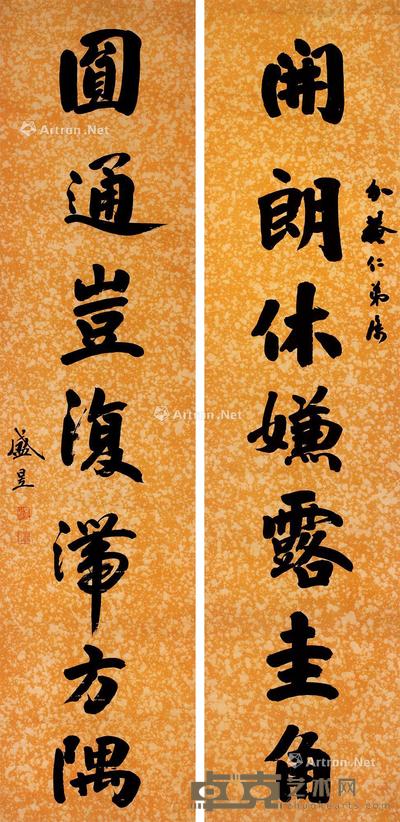 開朗休嫌露圭角
仁弟属
圓通豈復滞方隅
盛昱
Artron.Net
Artron.Net
Artron.Net
卓克艺术网